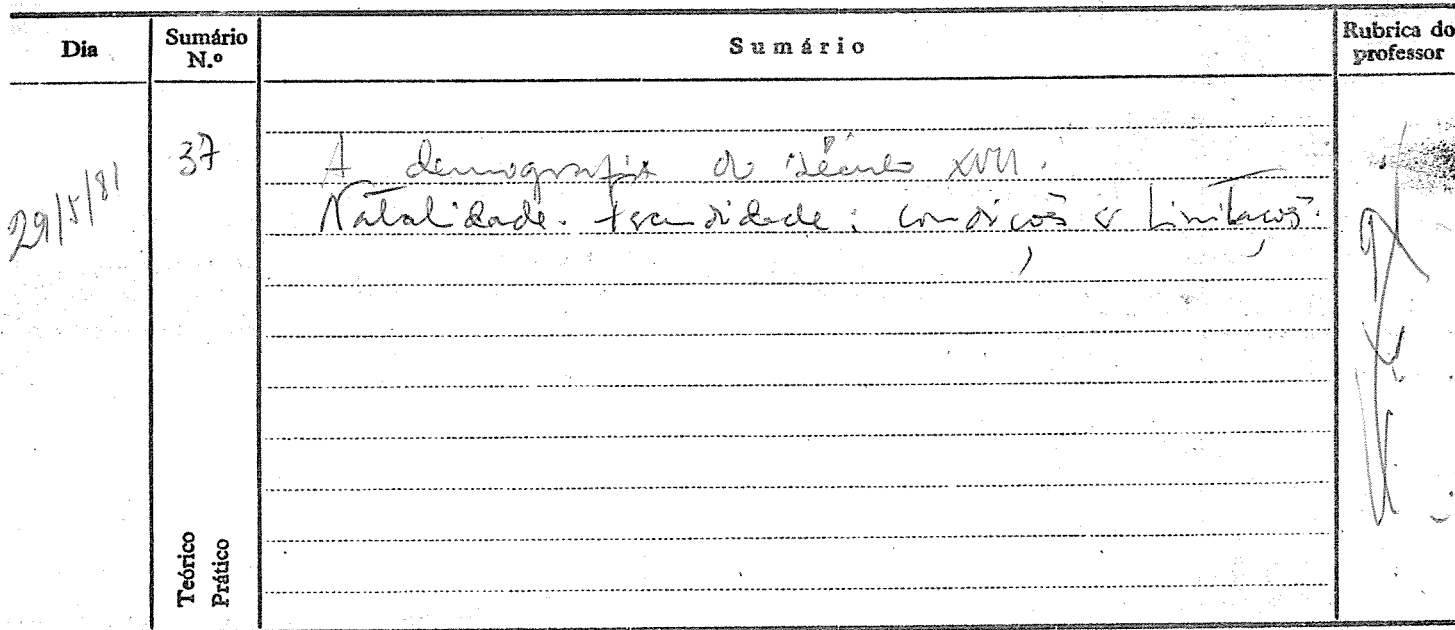 Dia
Sumário N.º
Sumário
Rubrica do professor
29/5/81
37
A demografia do século XVII.
Natalidade. Fecundidade: condições e limitações.
Teórico
Prático